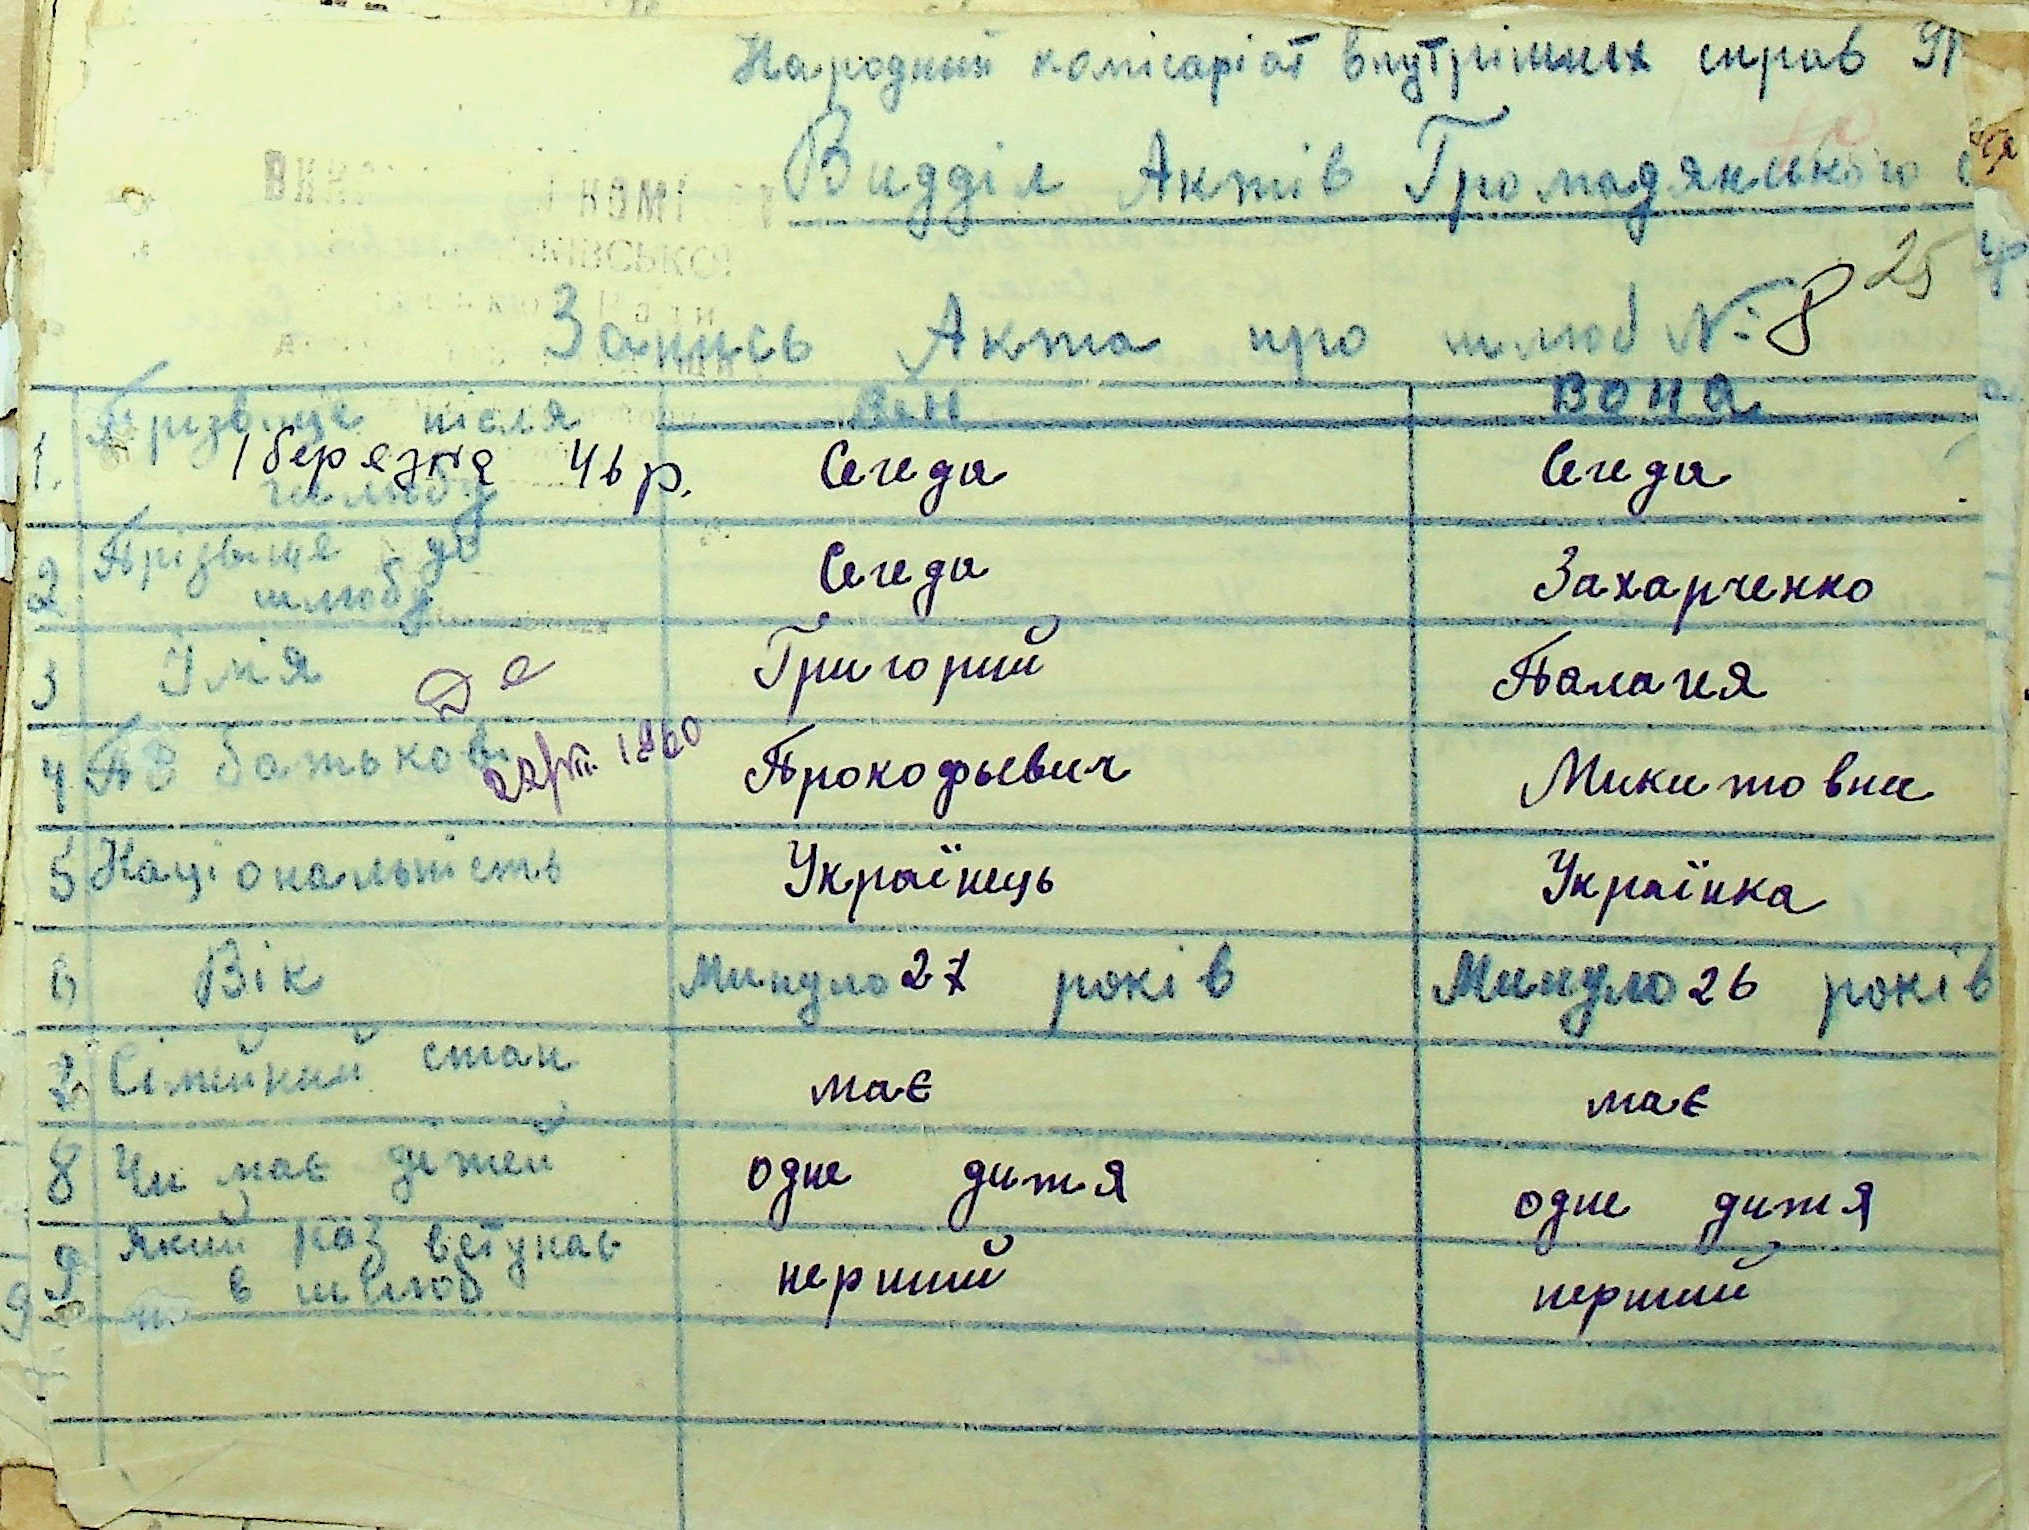 Народний комісаріат внутрішніх справ
Видділ Актів Громадянського
25
Запись Акта про шлюб № 8
ВІН ВОНА
1. Прізвище після шлюбу Сегеда Сегеда
1 березня 46 р.
2 Прізвище до шлюбу Сегеда Захарченко
3 Імія Григорий Палагея
4 По батькові Прокофьевич Микитовна
1960
5 Національність Українець Українка
6 Вік Минуло 27 років Минуло 26 років
7 Сімейний стан має має
8 Чи має дітей одне дитя одне дитя
9 Який раз вступає в шлюб перший перший